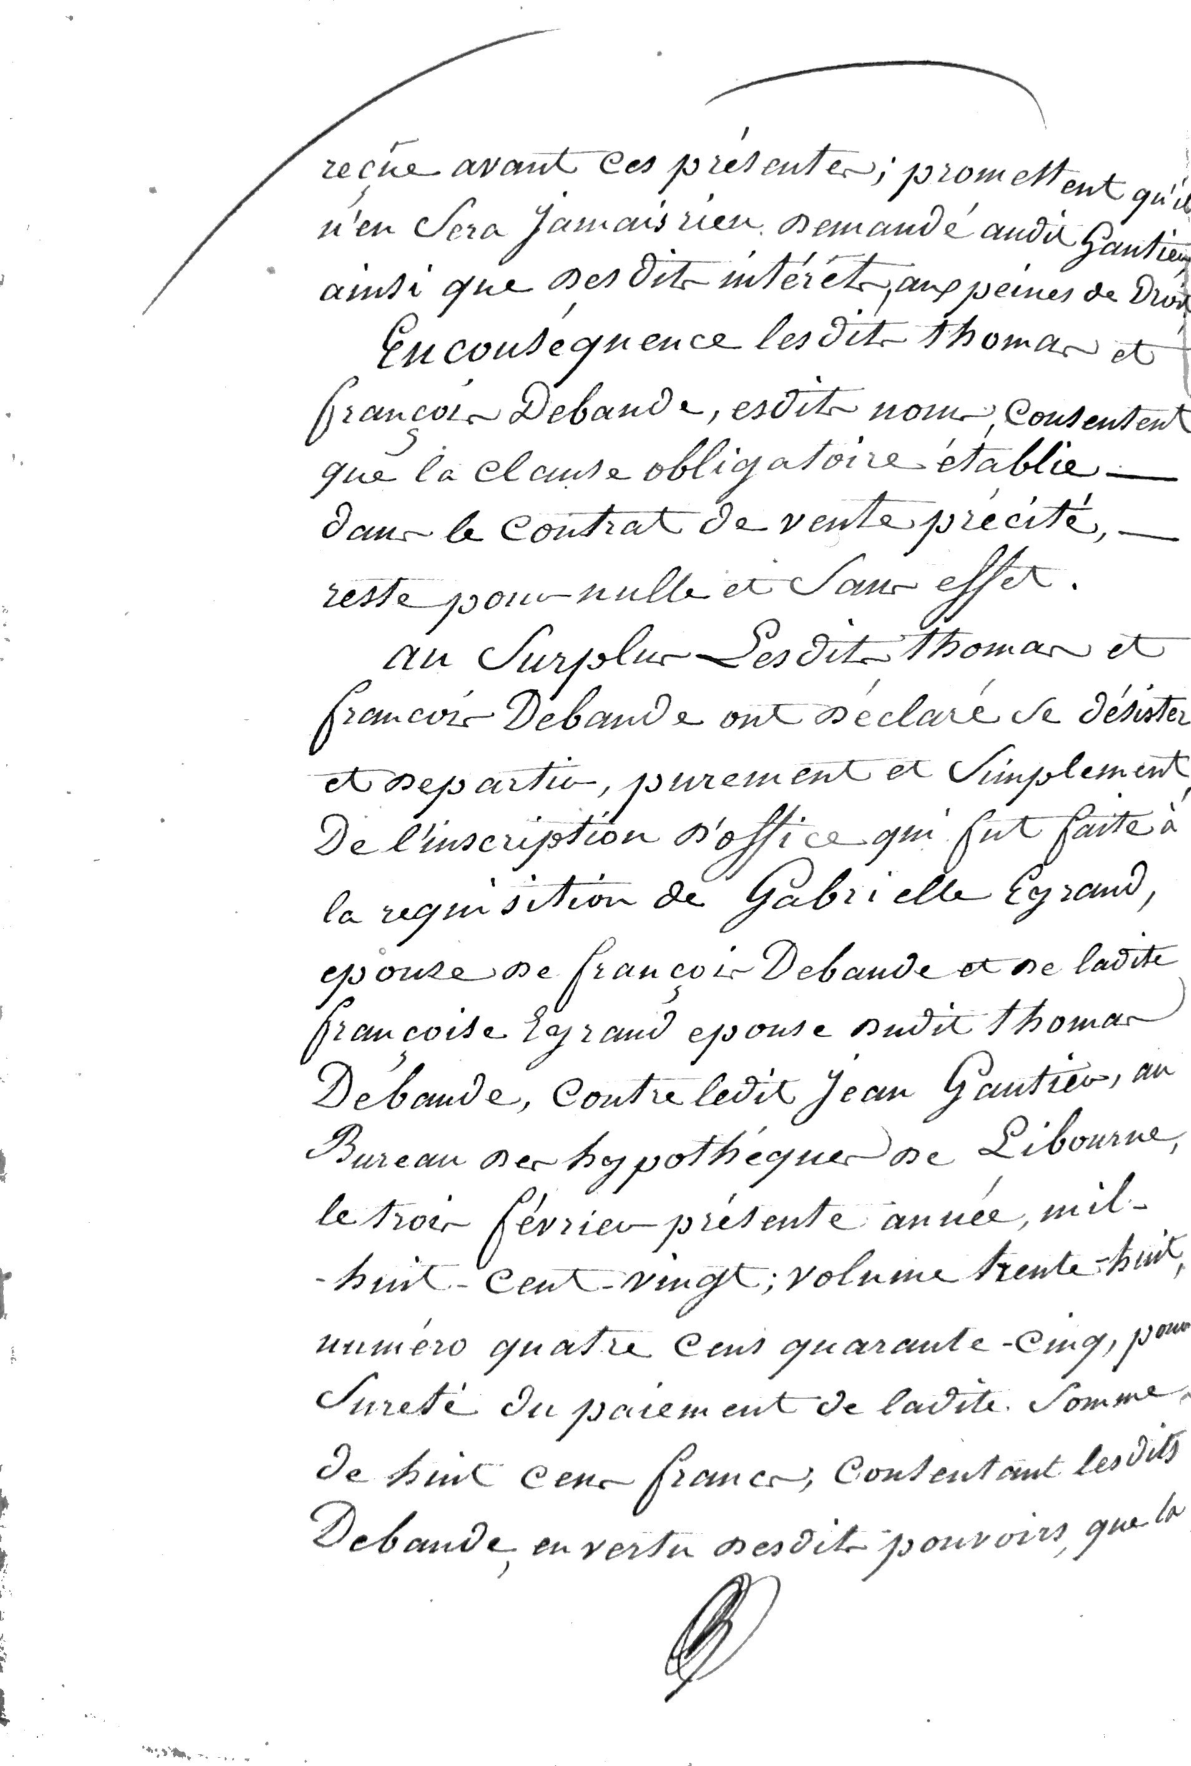 reçue avant ces présentes; promettent qu'il
n'en Sera Jamais rien demandé audit Gautier,
ainsi que desdits intérêts, aux peines de Droit
En conséquence lesdits thomas et
françois Debande, esdits noms, Consentent
que la clause obligatoire établie —
dans le contrat de vente précité, —
reste pour nulle et Sans effet.
au Surplus Lesdits thomas et
francois Debande ont déclaré se désister
et departir, purement et Simplement,
De l'inscription d'office qui fut faite à
la requisition de Gabrielle Egrand,
epouse de françois Debande et de ladite
françoise Egrand epouse dudit thomas
Debande, Contre ledit Jean Gautier, au
Bureau des hypothéques de Libourne,
le trois février présente année, mil-
-huit-cent-vingt; volume trente-huit,
numéro quatre cens quarante-cinq, pour
Sureté du paiement de ladite Somme
de huit cens francs; Consentant lesdits
Debande, en vertu desdits pouvoirs, que la